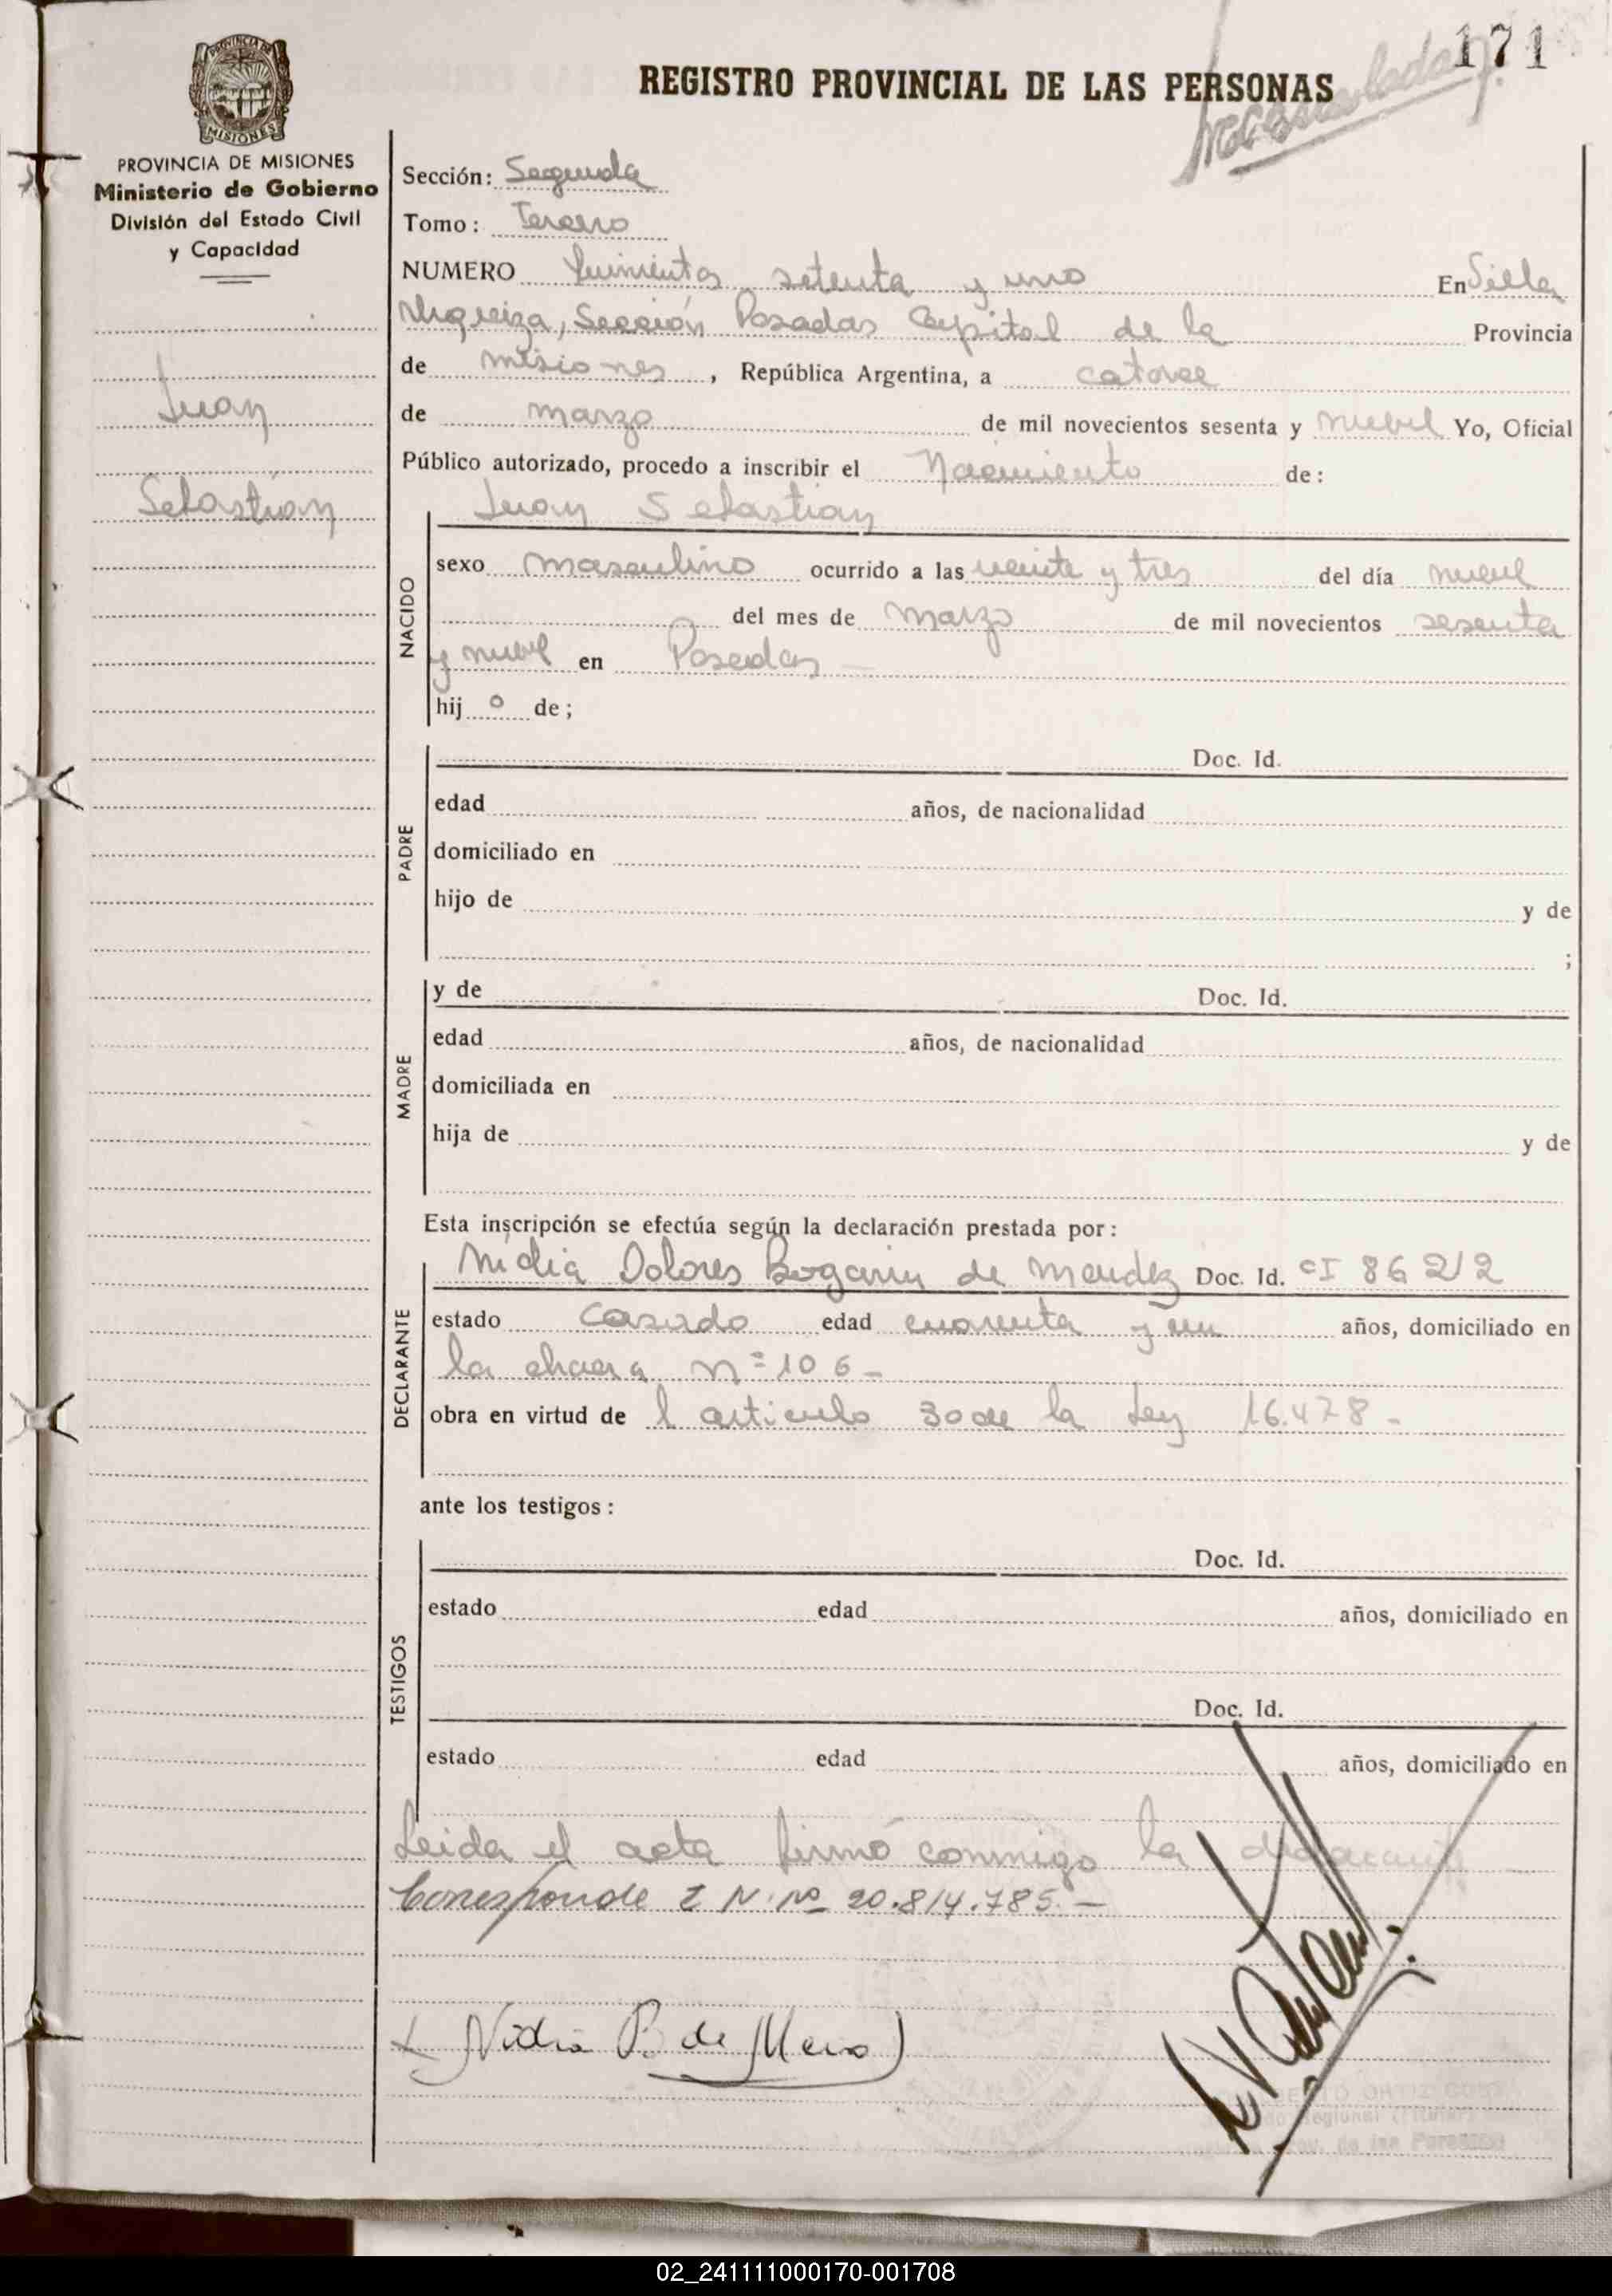 171
REGISTRO PROVINCIAL DE LAS PERSONAS
PROVINCIA DE
MISIONES
PROVINCIA DE MISIONES
Ministerio de Gobierno
División del Estado Civil
y Capacidad
Juan
Sebastián
Sección: Segunda
Tomo: Tercero
NUMERO Quinientos setenta y uno En Villa
Urquiza, Sección Posadas Capital de la Provincia
de misiones, República Argentina, a catorce
de marzo de mil novecientos sesenta y nueve Yo, Oficial
Público autorizado, procedo a inscribir el Nacimiento de:
NACIDO
Juan Sebastian
sexo masculino ocurrido a las veinte y tres del día nueve
del mes de marzo de mil novecientos sesenta
y nueve en Posadas —
hij o de;
PADRE
Doc. Id.
edad años, de nacionalidad
domiciliado en
hijo de y de
;
MADRE
y de Doc. Id.
edad años, de nacionalidad
domiciliada en
hija de y de
Esta inscripción se efectúa según la declaración prestada por:
DECLARANTE
Nidia Dolores Bogarin de Mendez Doc. Id. CI 86212
estado casado edad cuarenta y un años, domiciliado en
la chacra nº 106 -
obra en virtud de l articulo 30 de la Ley 16.478 -
ante los testigos:
TESTIGOS
Doc. Id.
estado edad años, domiciliado en
Doc. Id.
estado edad años, domiciliado en
Leida el acta firmó conmigo la declarante
Corresponde I N. Nº 20.814.785. —
Nidia B. de
ORTIZ
Regional (Titular)
Prov. de las Personas
02_241111000170-001708